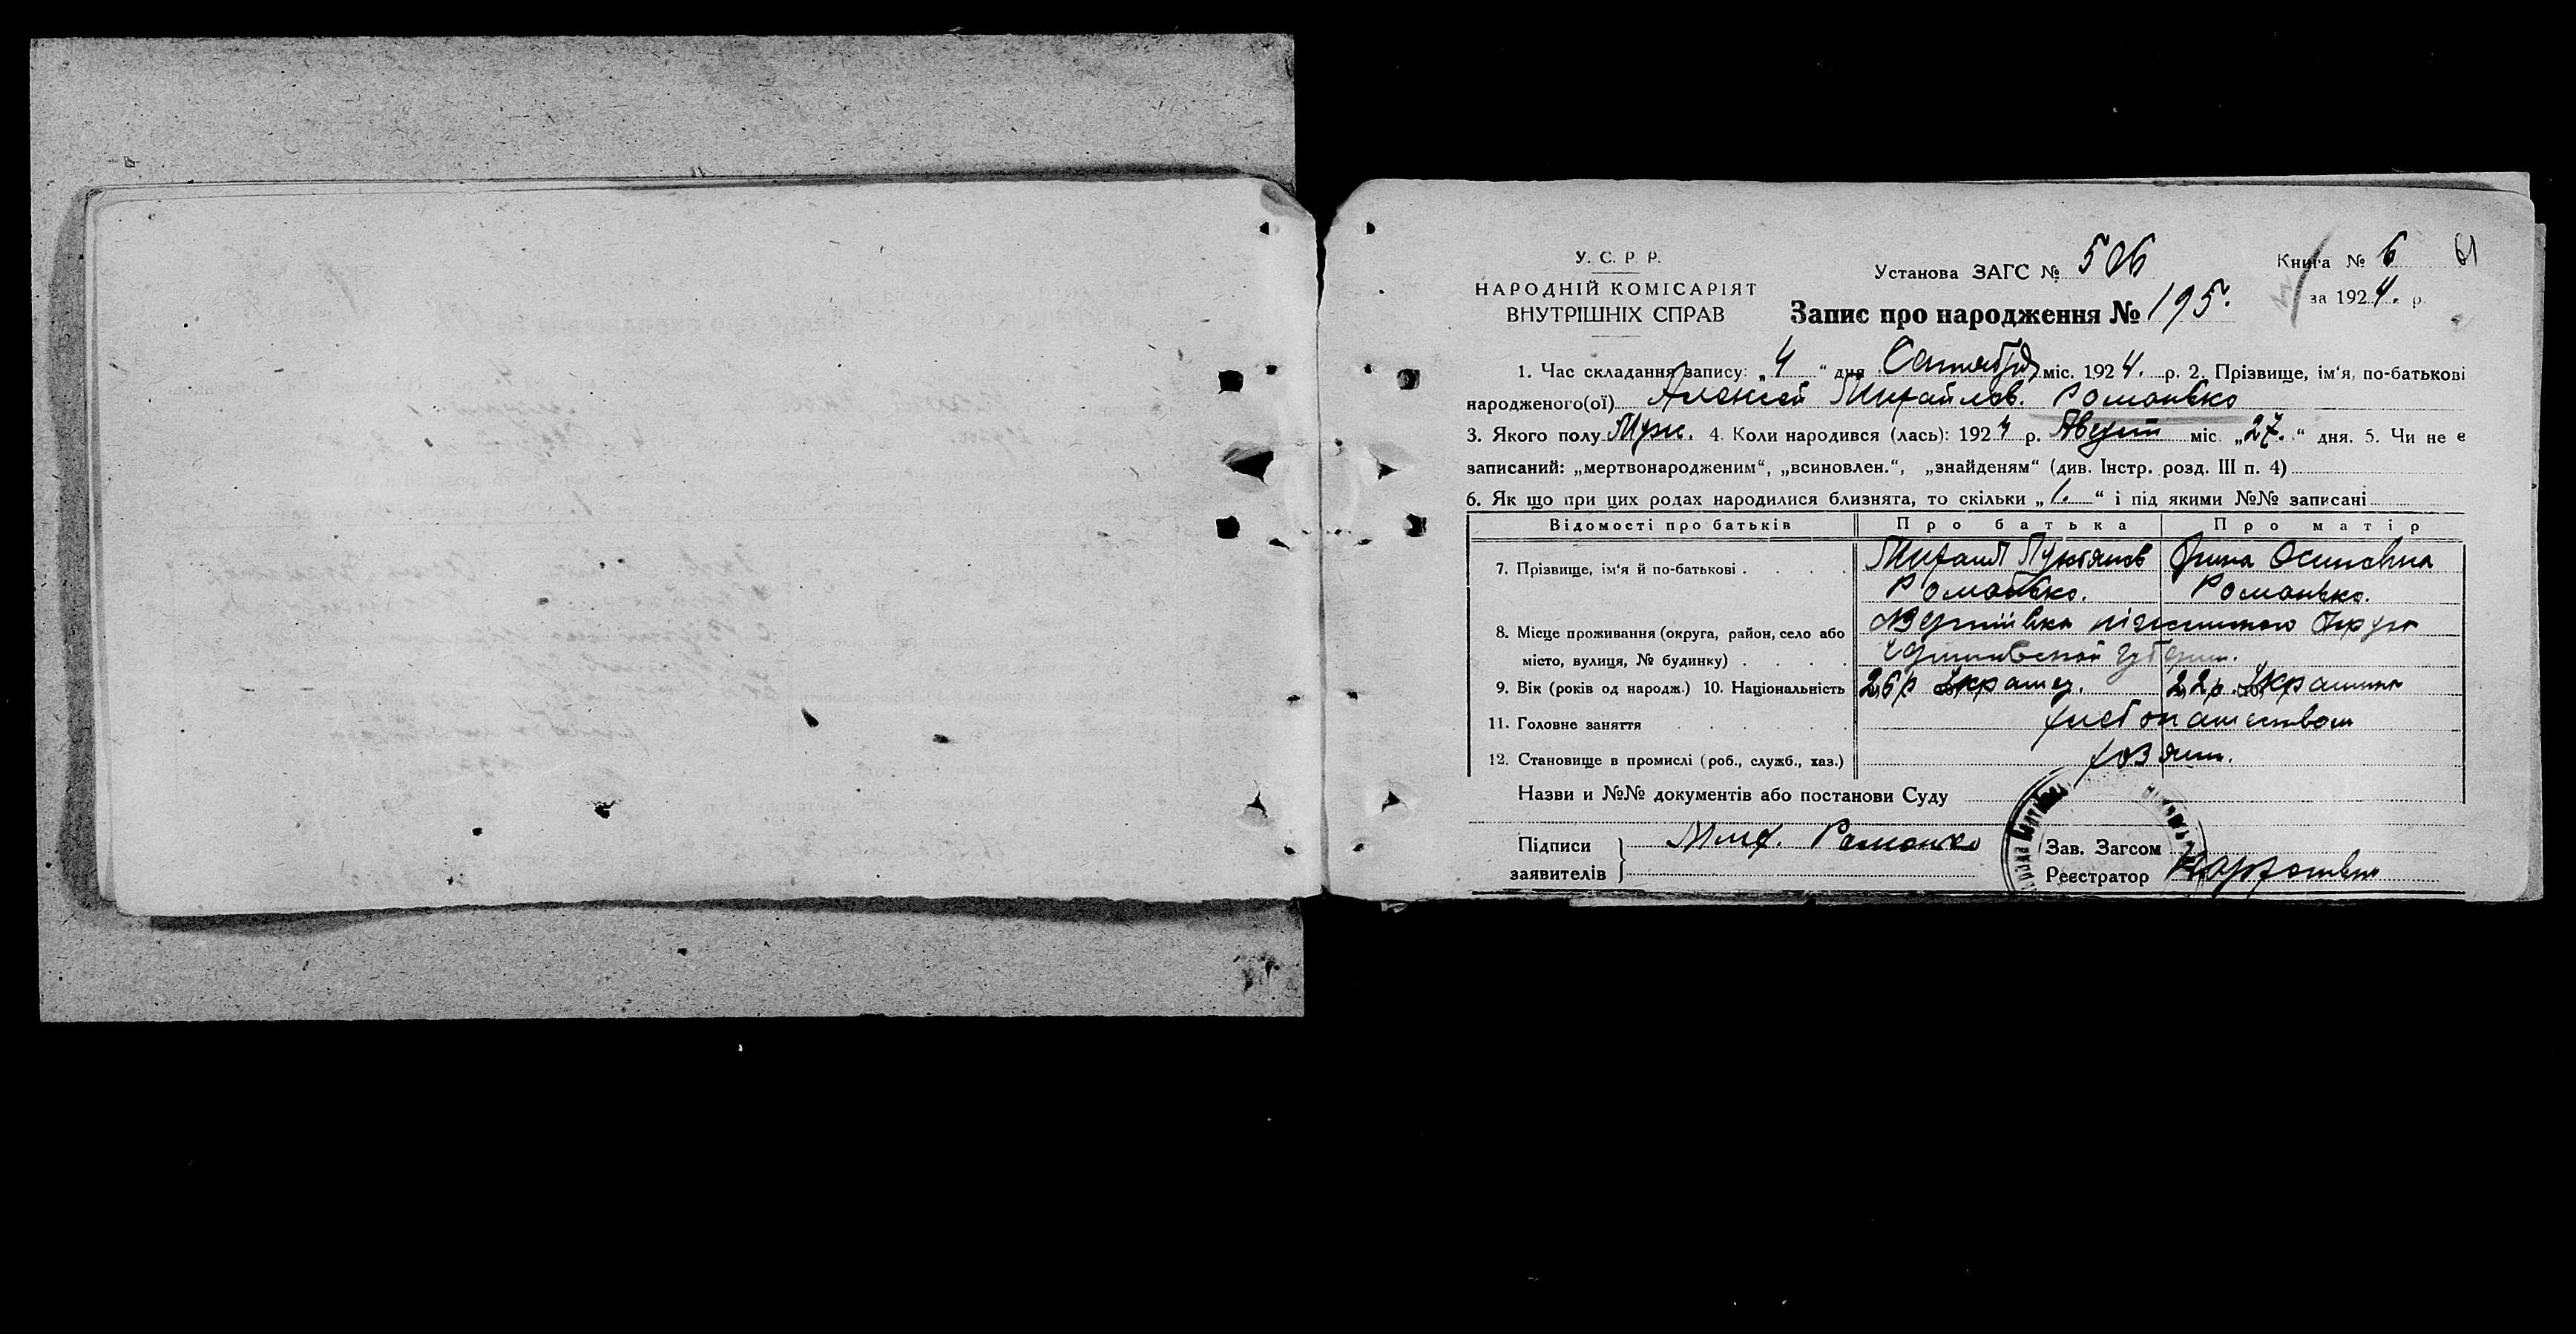 У. С. Р. Р.
НАРОДНІЙ КОМІСАРІЯТ
ВНУТРІШНІХ СПРАВ
Установа ЗАГС № 506
Книга № 6 61
за 1924. р.
Запис про народження № 195.
1. Час складання запису: „4“ дня Сентября міс. 1924. р. 2. Прізвище, ім'я, по-батькові
народженого(ої) Алексей Михайлов. Романько
3. Якого полу Муж. 4. Коли народився (лась): 1924 р. Август міс. „27.“ дня. 5. Чи не є
записаний: „мертвонародженим“, „всиновлен.“, „знайденям“ (див. Інстр. розд. III п. 4)
6. Як що при цих родах народилися близнята, то скільки „1.“ і під якими №№ записані
Відомості про батьків Про батька Про матір
7. Прізвище, ім'я й по-батькові . . . . Михаил Лукьянов Ірина Осиповна
Романько. Романько.
8. Місце проживання (округа, район, село або Вертіївка Ніжинского Округа
місто, вулиця, № будинку) . . . . Черниговской губерни.
9. Вік (років од народж.) 10. Національність 26 р Украинец. 22 р. Украинка
11. Головне заняття . . . . . хлебопашеством
12. Становище в промислі (роб., служб., хаз.) хозяин.
Назви и №№ документів або постанови Суду
Підписи Мих. Романько
заявителів
Зав. Загсом
Реєстратор